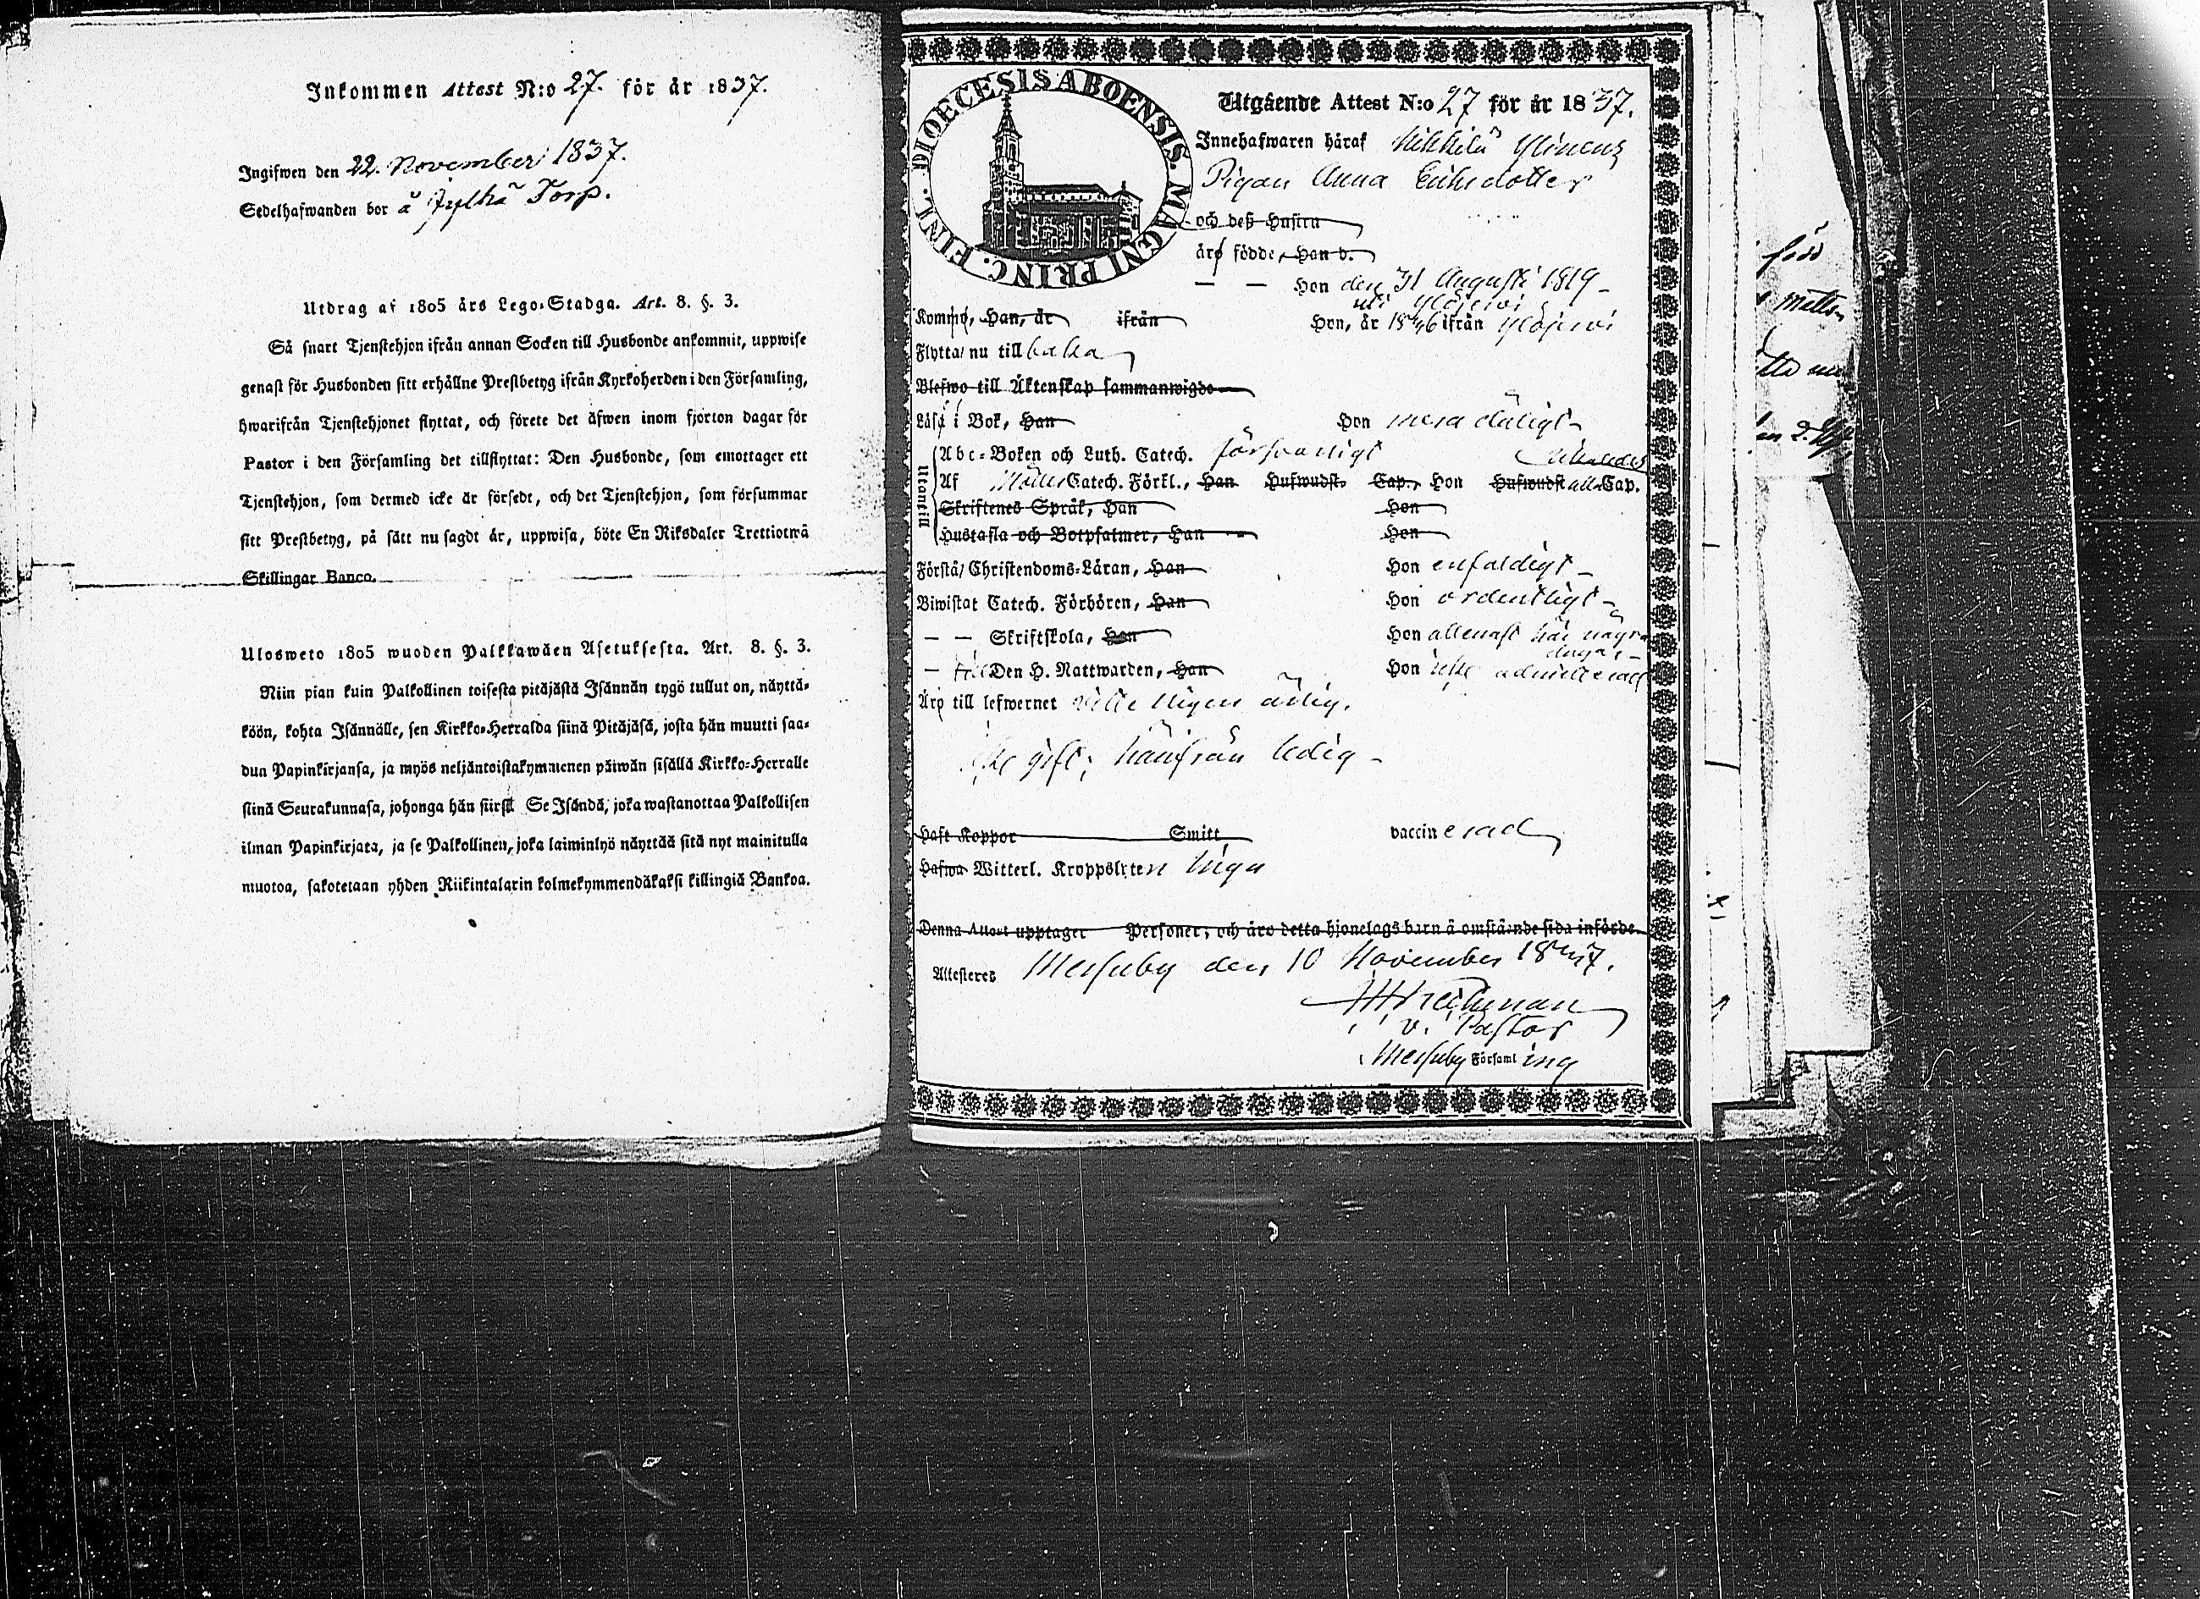 Inkommen Attest N:o 27. för år 1837.
Ingifwen den 22. November 1837.
Sedelhafwanden bor å Jylhä Torp.
Utdrag af 1805 års Lego-Stadga. Art. 8. §. 3.
Så snart Tjenstehjon ifrån annan Socken till Husbonde ankommit, uppwise
genast för Husbonden sitt erhållne Prestbetyg ifrån Kyrkoherden i den Församling,
hwarifrån Tjenstehjonet flyttat, och förete det äfwen inom fjorton dagar för
Pastor i den Församling det tillflyttat: Den Husbonde, som emottager ett
Tjenstehjon, som dermed icke är försedt, och det Tjenstehjon, som försummar
sitt Prestbetyg, på sätt nu sagdt är, uppwisa, böte En Riksdaler Trettiotwå
Skillingar Banco.
Ulosweto 1805 wuoden Palkkawäen Asetuksesta. Art. 8. §. 3.
Niin pian kuin Palkollinen toisesta pitäjästä Isännän tygö tullut on, näyttä-
köön, kohta Isännälle, sen Kirkko-Herralda siinä Pitäjäsä, josta hän muutti saa-
dun Papinkirjansa, ja myös neljäntoistakymmenen päiwän sisällä Kirkko-Herralle
siinä Seurakunnasa, johonga hän siirsi. Se Isändä, joka wastanottaa Palkollisen
ilman Papinkirjata, ja se Palkollinen, joka laiminlyö näyttää sitä nyt mainitulla
muotoa, sakotetaan yhden Riikintalarin kolmekymmendäkaksi killingiä Bankoa.
DIOECESIS ABOENSIS. MAGNI PRINC. FINL.
Utgående Attest N:o 27 för år 1837.
Innehafwaren häraf Mikkilä
Pigan Anna Eriksdotter
och deß Hustru
äro födde, Han d.
— — Hon den 31 Augusti 1819
uti Ylöjerwi
Kommo, Han, år ifrån Hon, år 1836 ifrån Ylöjerwi
Flytta nu till baka
Blefwo till Äktenskap sammanwigde
Läsa i Bok, Han Hon mera dåligt
Utantill
Abc-Boken och Luth. Catech. försvarligt
Af Möllers Catech. Förkl., Han Hufwudst. Cap., Hon Hufwudst. alla Cap.
Skriftenes Språk, Han Hon
Hustafla och Botpsalmer, Han Hon
Förstå Christendoms-Läran, Han Hon enfaldigt
Biwistat Catech. Förhören, Han Hon ordentligt
— — Skriftskola, Han Hon allenast här några
dagar
— till Den H. Nattwarden, Han Hon icke admitterad
Äro till lefwernet ärlig.
icke gift; härifrån ledig
Haft Koppor Smitt vaccinerad
Hafwa Witterl. Kroppslyten inga
Denna Attest upptager Personer, och äro detta hjonelags barn å omstående sida införde.
Attesteres Messuby den 10 November 1837.
v. Pastor
i Messuby Församling
född